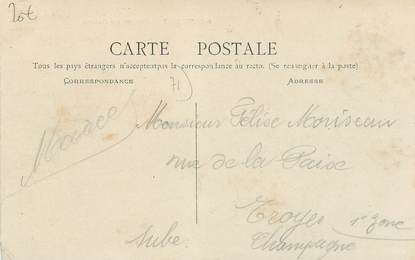 20€
CARTE POSTALE
Tous les pays étrangers n'acceptent pas la correspondance au recto. (Se renseigner à la poste).
CORRESPONDANCE
71
ADRESSE
Monsieur Félise Moriseau
rue de la Paise
Troyes 1e zone
Aube
Champagne